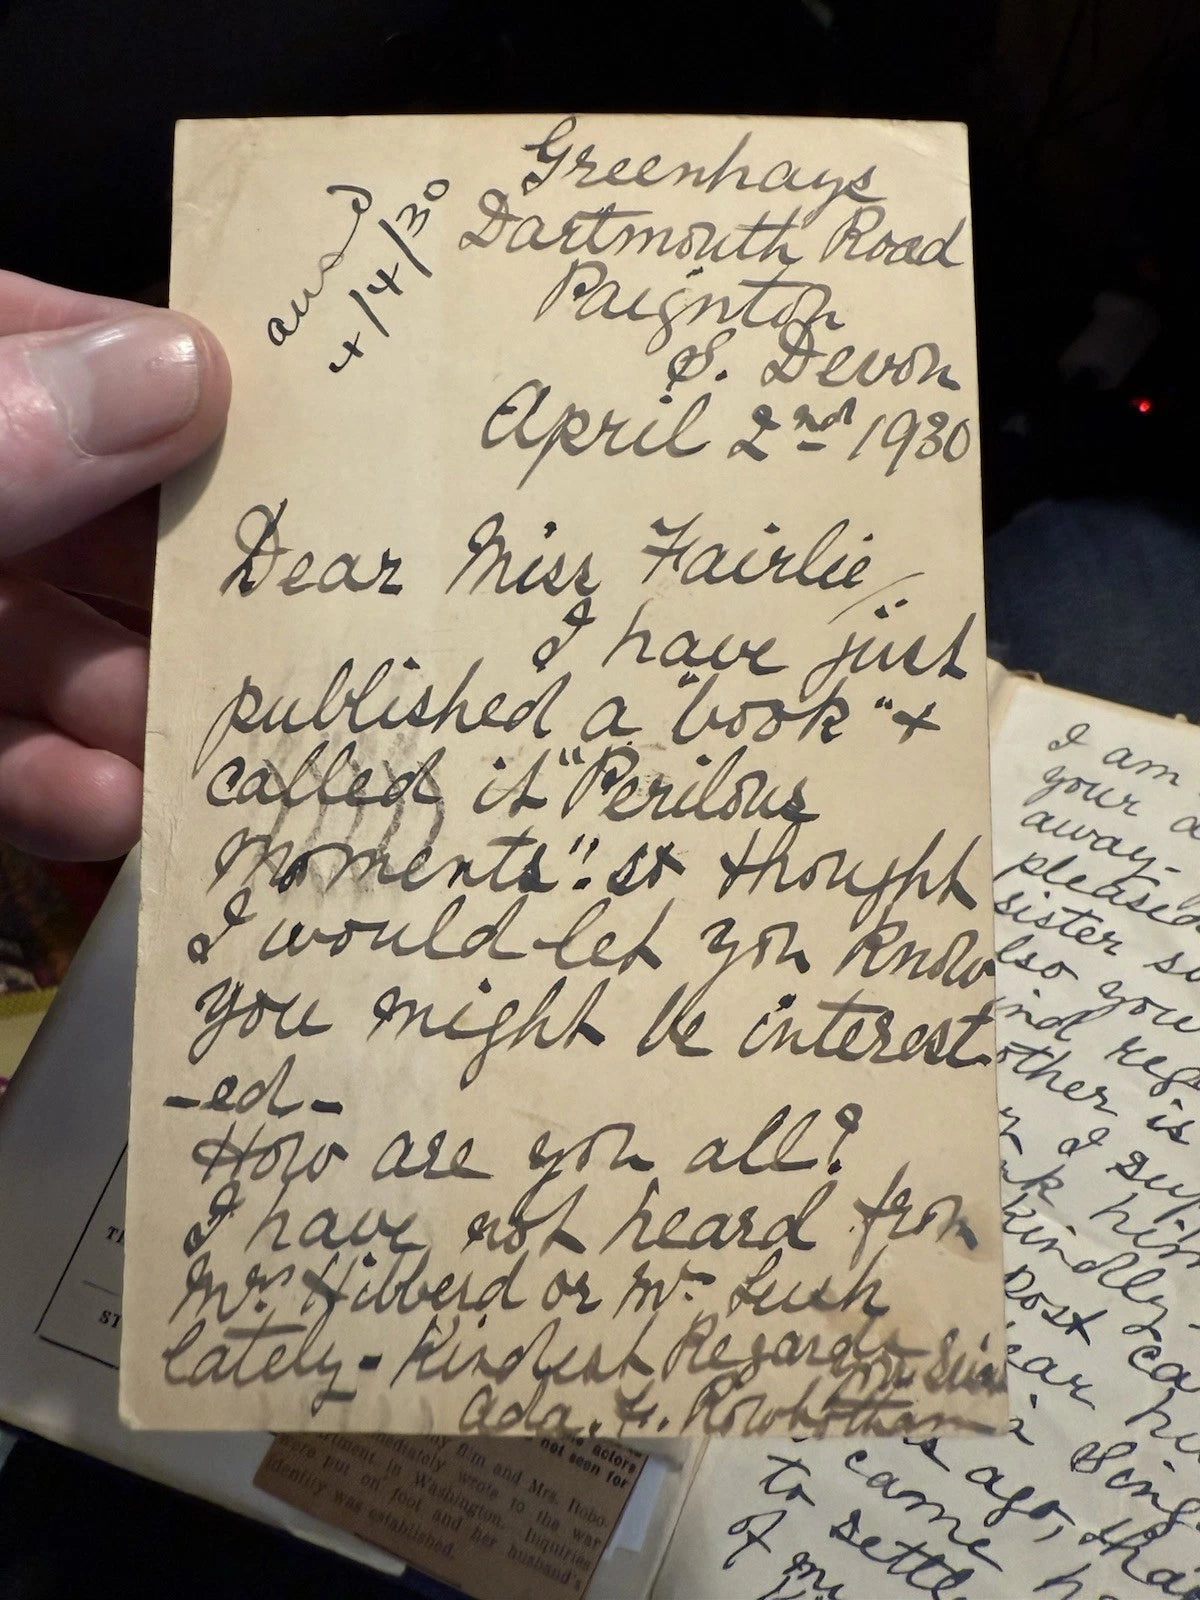 Greenhays
Dartmouth Road
Paignton
S. Devon
April 2nd 1930
4/4/30
Dear Miss Fairlie,
I have just
published a "book" +
called it "Perilous
Moments". so thought
I would let you know
you might be interest
-ed-
How are you all?
I have not heard from
Mrs. Hibberd or Mr. Lush
lately - Kindest Regards
Ada. F. Rowbotham
I am
your
away-
pleased
sister
also you
kind
other is
I
him
kindly-
Post
Sing
ago, tha
to came
settle
of my
actors
not seen for
film and Mrs. Robo-
immediately wrote to the war
department in Washington. Inquiries
were put on foot and her husband's
identity was established.